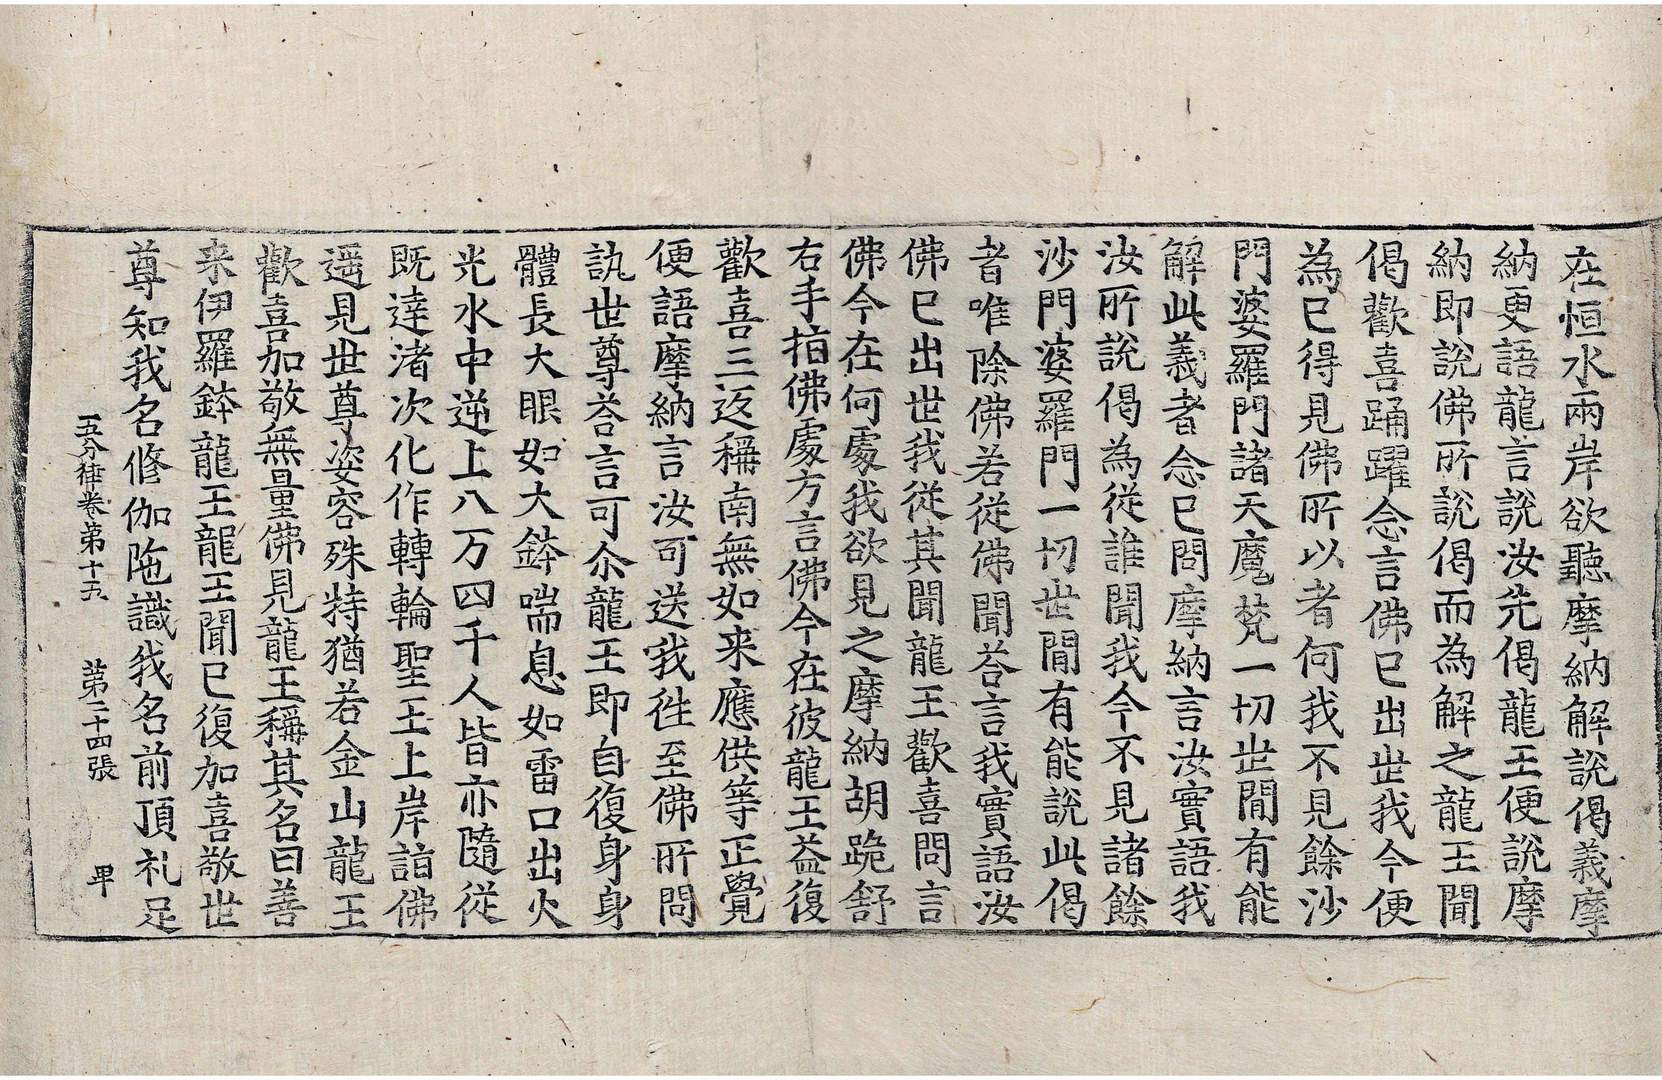 在恒水兩岸欲聽摩納解說偈義摩
納更語龍言說汝先偈龍王便說摩
納即說佛所說偈而為解之龍王聞
偈歡喜踊躍念言佛已出世我今便
為已得見佛所以者何我不見餘沙
門婆羅門諸天魔梵一切世間有能
解此義者念已問摩納言汝實語我
汝所說偈為從誰聞我今不見諸餘
沙門婆羅門一切世間有能說此偈
者唯除佛若從佛聞荅言我實語汝
佛已出世我從其聞龍王歡喜問言
佛今在何處我欲見之摩納胡跪舒
右手指佛處方言佛今在彼龍王益復
歡喜三返稱南無如来應供等正覺
便語摩納言汝可送我徃至佛所問
訊世尊荅言可尒龍王即自復身身
體長大眼如大鉢喘息如雷口出火
光水中逆上八万四千人皆亦隨從
既達渚次化作轉輪聖王上岸詣佛
遥見世尊姿容殊特猶若金山龍王
歡喜加敬無量佛見龍王稱其名曰善
来伊羅鉢龍王龍王聞已復加喜敬世
尊知我名修伽陁識我名前頂礼足
五分律卷第十五 第二十四張 卑